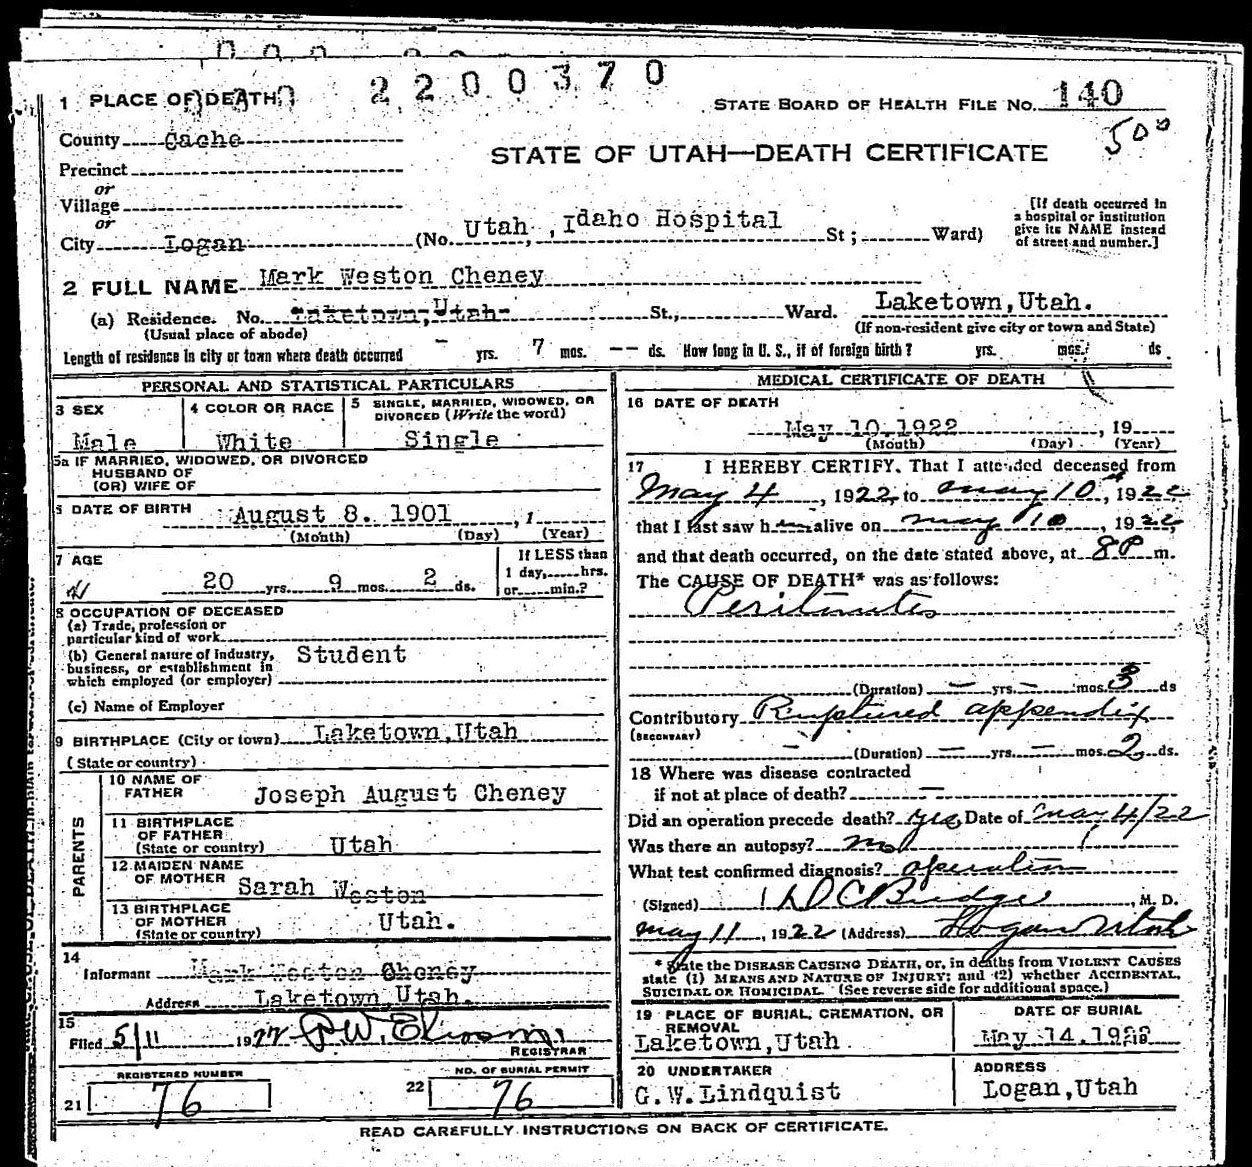 2200370
1 PLACE OF DEATH
STATE BOARD OF HEALTH FILE NO. 140
County Cache
500
STATE OF UTAH—DEATH CERTIFICATE
Precinct
or
Village
or
City Logan (No. Utah, Idaho Hospital St; Ward)
[If death occurred in a hospital or institution give its NAME instead of street and number.]
2 FULL NAME Mark Weston Cheney
(a) Residence. No. Laketown, Utah St., Ward. Laketown, Utah.
(Usual place of abode) (If non-resident give city or town and State)
Length of residence in city or town where death occurred - yrs. 7 mos. -- ds. How long in U. S., if of foreign birth? yrs. mos. ds
PERSONAL AND STATISTICAL PARTICULARS
3 SEX 4 COLOR OR RACE 5 SINGLE, MARRIED, WIDOWED, OR DIVORCED (Write the word)
Male White Single
5a IF MARRIED, WIDOWED, OR DIVORCED
HUSBAND OF
(OR) WIFE OF
6 DATE OF BIRTH August 8. 1901 , 1
(Month) (Day) (Year)
7 AGE
20 yrs. 9 mos. 2 ds.
If LESS than
1 day, hrs.
or min.?
8 OCCUPATION OF DECEASED
(a) Trade, profession or
particular kind of work
(b) General nature of industry,
business, or establishment in
which employed (or employer) Student
(c) Name of Employer
9 BIRTHPLACE (City or town) Laketown, Utah
(State or country)
PARENTS
10 NAME OF
FATHER Joseph August Cheney
11 BIRTHPLACE
OF FATHER
(State or country) Utah
12 MAIDEN NAME
OF MOTHER Sarah Weston
13 BIRTHPLACE
OF MOTHER
(State or country) Utah.
14
Informant Mark Weston Cheney
Address Laketown, Utah.
15
Filed 5/11 1922
REGISTRAR
REGISTERED NUMBER
21 76
NO. OF BURIAL PERMIT
22 76
MEDICAL CERTIFICATE OF DEATH
16 DATE OF DEATH
May 10. 1922 , 19
(Month) (Day) (Year)
17 I HEREBY CERTIFY, That I attended deceased from
May 4, 1922, to May 10, 1922
that I last saw him alive on May 10, 1922,
and that death occurred, on the date stated above, at 8 P m.
The CAUSE OF DEATH* was as follows:
Peritinutes
(Duration) — yrs. — mos. 3 ds
Contributory Ruptured appendix
(SECONDARY)
(Duration) — yrs. — mos. 2 ds.
18 Where was disease contracted
if not at place of death? —
Did an operation precede death? yes Date of May 4/22
Was there an autopsy? no
What test confirmed diagnosis? operation
(Signed) D C Budge, M. D.
May 11, 1922 (Address) Logan Utah
* State the DISEASE CAUSING DEATH, or, in deaths from VIOLENT CAUSES
state (1) MEANS AND NATURE OF INJURY; and (2) whether ACCIDENTAL,
SUICIDAL OR HOMICIDAL. (See reverse side for additional space.)
19 PLACE OF BURIAL, CREMATION, OR
REMOVAL
Laketown, Utah
DATE OF BURIAL
May 14. 1922
20 UNDERTAKER
G. W. Lindquist
ADDRESS
Logan, Utah
READ CAREFULLY INSTRUCTIONS ON BACK OF CERTIFICATE.